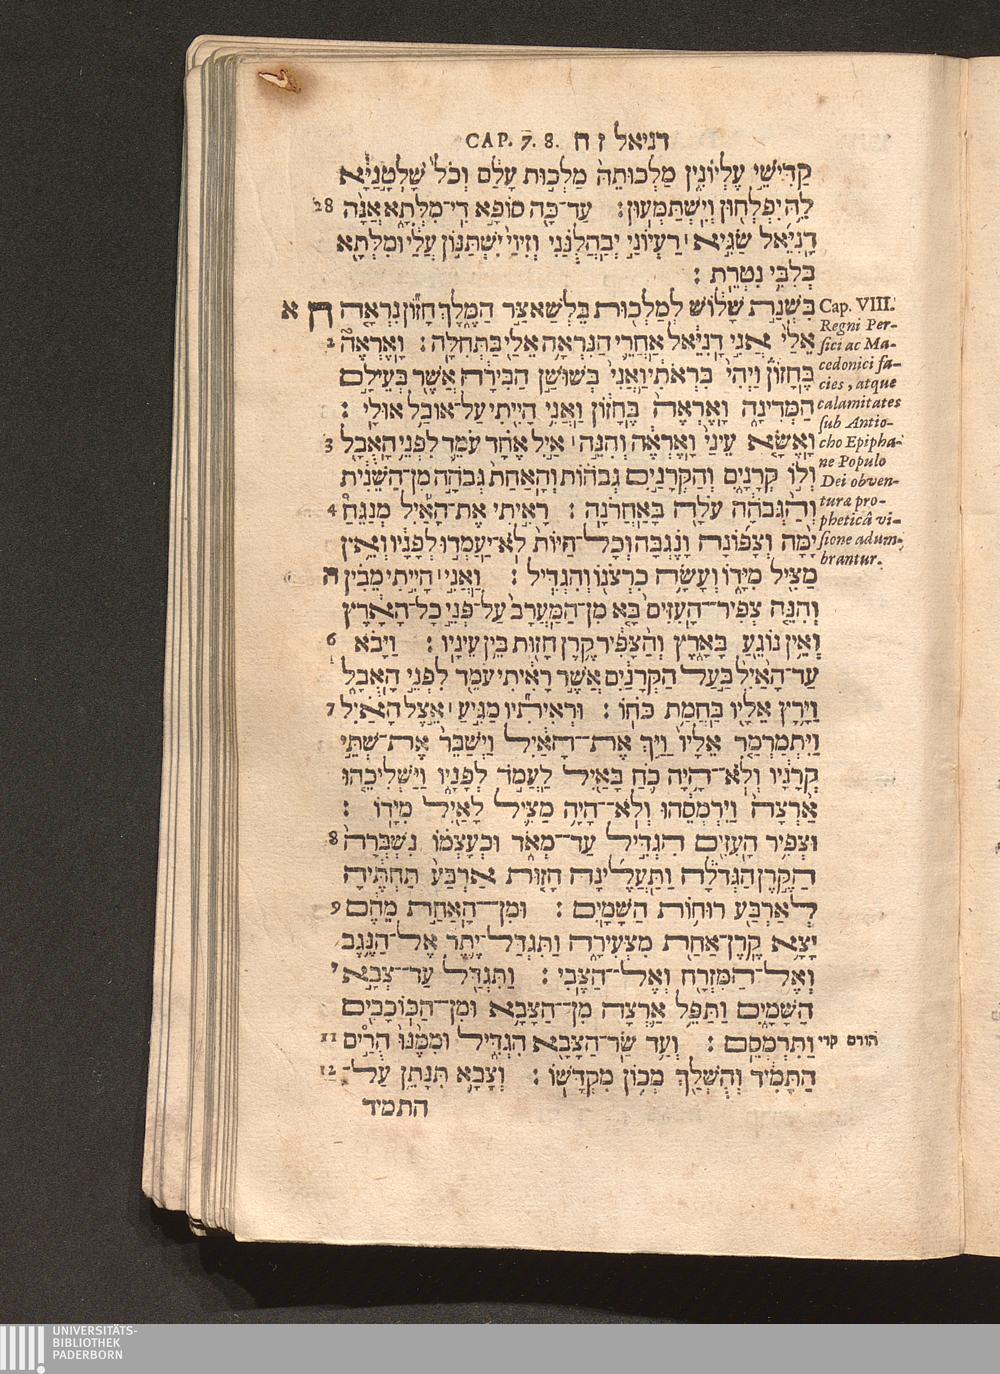 CAP. 7. 8. דניאל ז ח
קַדִּישֵׁי עֶלְיוֹנִין מַלְכוּתֵהּ מַלְכוּת עָלַם וְכֹל שָׁלְטָנַיָּא
לֵהּ יִפְלְחוּן וְיִשְׁתַּמְּעוּן׃ עַד־כָּה סוֹפָא דִי־מִלְּתָא אֲנָה 28
דָנִיֵּאל שַׂגִּיא רַעְיוֹנַי יְבַהֲלֻנַּנִי וְזִיוַי יִשְׁתַּנּוֹן עֲלַי וּמִלְּתָא
בְּלִבִּי נִטְרֵת׃
בִּשְׁנַת שָׁלוֹשׁ לְמַלְכוּת בֵּלְשַׁאצַּר הַמֶּלֶךְ חָזוֹן נִרְאָה ח א
אֵלַי אֲנִי דָנִיֵּאל אַחֲרֵי הַנִּרְאָה אֵלַי בַּתְּחִלָּה׃ וָאֶרְאֶה 2
בֶּחָזוֹן וַיְהִי בִּרְאֹתִי וַאֲנִי בְּשׁוּשַׁן הַבִּירָה אֲשֶׁר בְּעֵילָם
הַמְּדִינָה וָאֶרְאֶה בֶּחָזוֹן וַאֲנִי הָיִיתִי עַל־אוּבַל אוּלָי׃
וָאֶשָּׂא עֵינַי וָאֶרְאֶה וְהִנֵּה אַיִל אֶחָד עֹמֵד לִפְנֵי הָאֻבָל 3
וְלוֹ קְרָנָיִם וְהַקְּרָנַיִם גְּבֹהוֹת וְהָאַחַת גְּבֹהָה מִן־הַשֵּׁנִית
וְהַגְּבֹהָה עֹלָה בָּאַחֲרֹנָה׃ רָאִיתִי אֶת־הָאַיִל מְנַגֵּחַ 4
יָמָּה וְצָפוֹנָה וָנֶגְבָּה וְכָל־חַיּוֹת לֹא־יַעַמְדוּ לְפָנָיו וְאֵין
מַצִּיל מִיָּדוֹ וְעָשָׂה כִרְצֹנוֹ וְהִגְדִּיל׃ וַאֲנִי הָיִיתִי מֵבִין ה
וְהִנֵּה צְפִיר־הָעִזִּים בָּא מִן־הַמַּעֲרָב עַל־פְּנֵי כָל־הָאָרֶץ
וְאֵין נוֹגֵעַ בָּאָרֶץ וְהַצָּפִיר קֶרֶן חָזוּת בֵּין עֵינָיו׃ וַיָּבֹא 6
עַד־הָאַיִל בַּעַל הַקְּרָנַיִם אֲשֶׁר רָאִיתִי עֹמֵד לִפְנֵי הָאֻבָל
וַיָּרָץ אֵלָיו בַּחֲמַת כֹּחוֹ׃ וּרְאִיתִיו מַגִּיעַ אֵצֶל הָאַיִל 7
וַיִּתְמַרְמַר אֵלָיו וַיַּךְ אֶת־הָאַיִל וַיְשַׁבֵּר אֶת־שְׁתֵּי
קְרָנָיו וְלֹא־הָיָה כֹחַ בָּאַיִל לַעֲמֹד לְפָנָיו וַיַּשְׁלִיכֵהוּ
אַרְצָה וַיִּרְמְסֵהוּ וְלֹא־הָיָה מַצִּיל לָאַיִל מִיָּדוֹ׃
וּצְפִיר הָעִזִּים הִגְדִּיל עַד־מְאֹד וּכְעָצְמוֹ נִשְׁבְּרָה 8
הַקֶּרֶן הַגְּדֹלָה וַתַּעֲלֶינָה חָזוּת אַרְבַּע תַּחְתֶּיהָ
לְאַרְבַּע רוּחוֹת הַשָּׁמָיִם׃ וּמִן־הָאַחַת מֵהֶם 9
יָצָא קֶרֶן־אַחַת מִצְּעִירָה וַתִּגְדַּל־יֶתֶר אֶל־הַנֶּגֶב
וְאֶל־הַמִּזְרָח וְאֶל־הַצֶּבִי׃ וַתִּגְדַּל עַד־צְבָא י
הַשָּׁמָיִם וַתַּפֵּל אַרְצָה מִן־הַצָּבָא וּמִן־הַכּוֹכָבִים
וַתִּרְמְסֵם׃ וְעַד שַׂר־הַצָּבָא הִגְדִּיל וּמִמֶּנּוּ הֵרִים 11
הַתָּמִיד וְהֻשְׁלַךְ מְכוֹן מִקְדָּשׁוֹ׃ וְצָבָא תִּנָּתֵן עַל־ 12
התמיד
Cap. VIII.
Regni Per-
sici ac Ma-
cedonici fa-
cies, atque
calamitates
sub Antio-
cho Epipha-
ne Populo
Dei obven-
turæ pro-
pheticâ vi-
sione adum-
brantur.
הורם קרי
UNIVERSITÄTS-
BIBLIOTHEK
PADERBORN